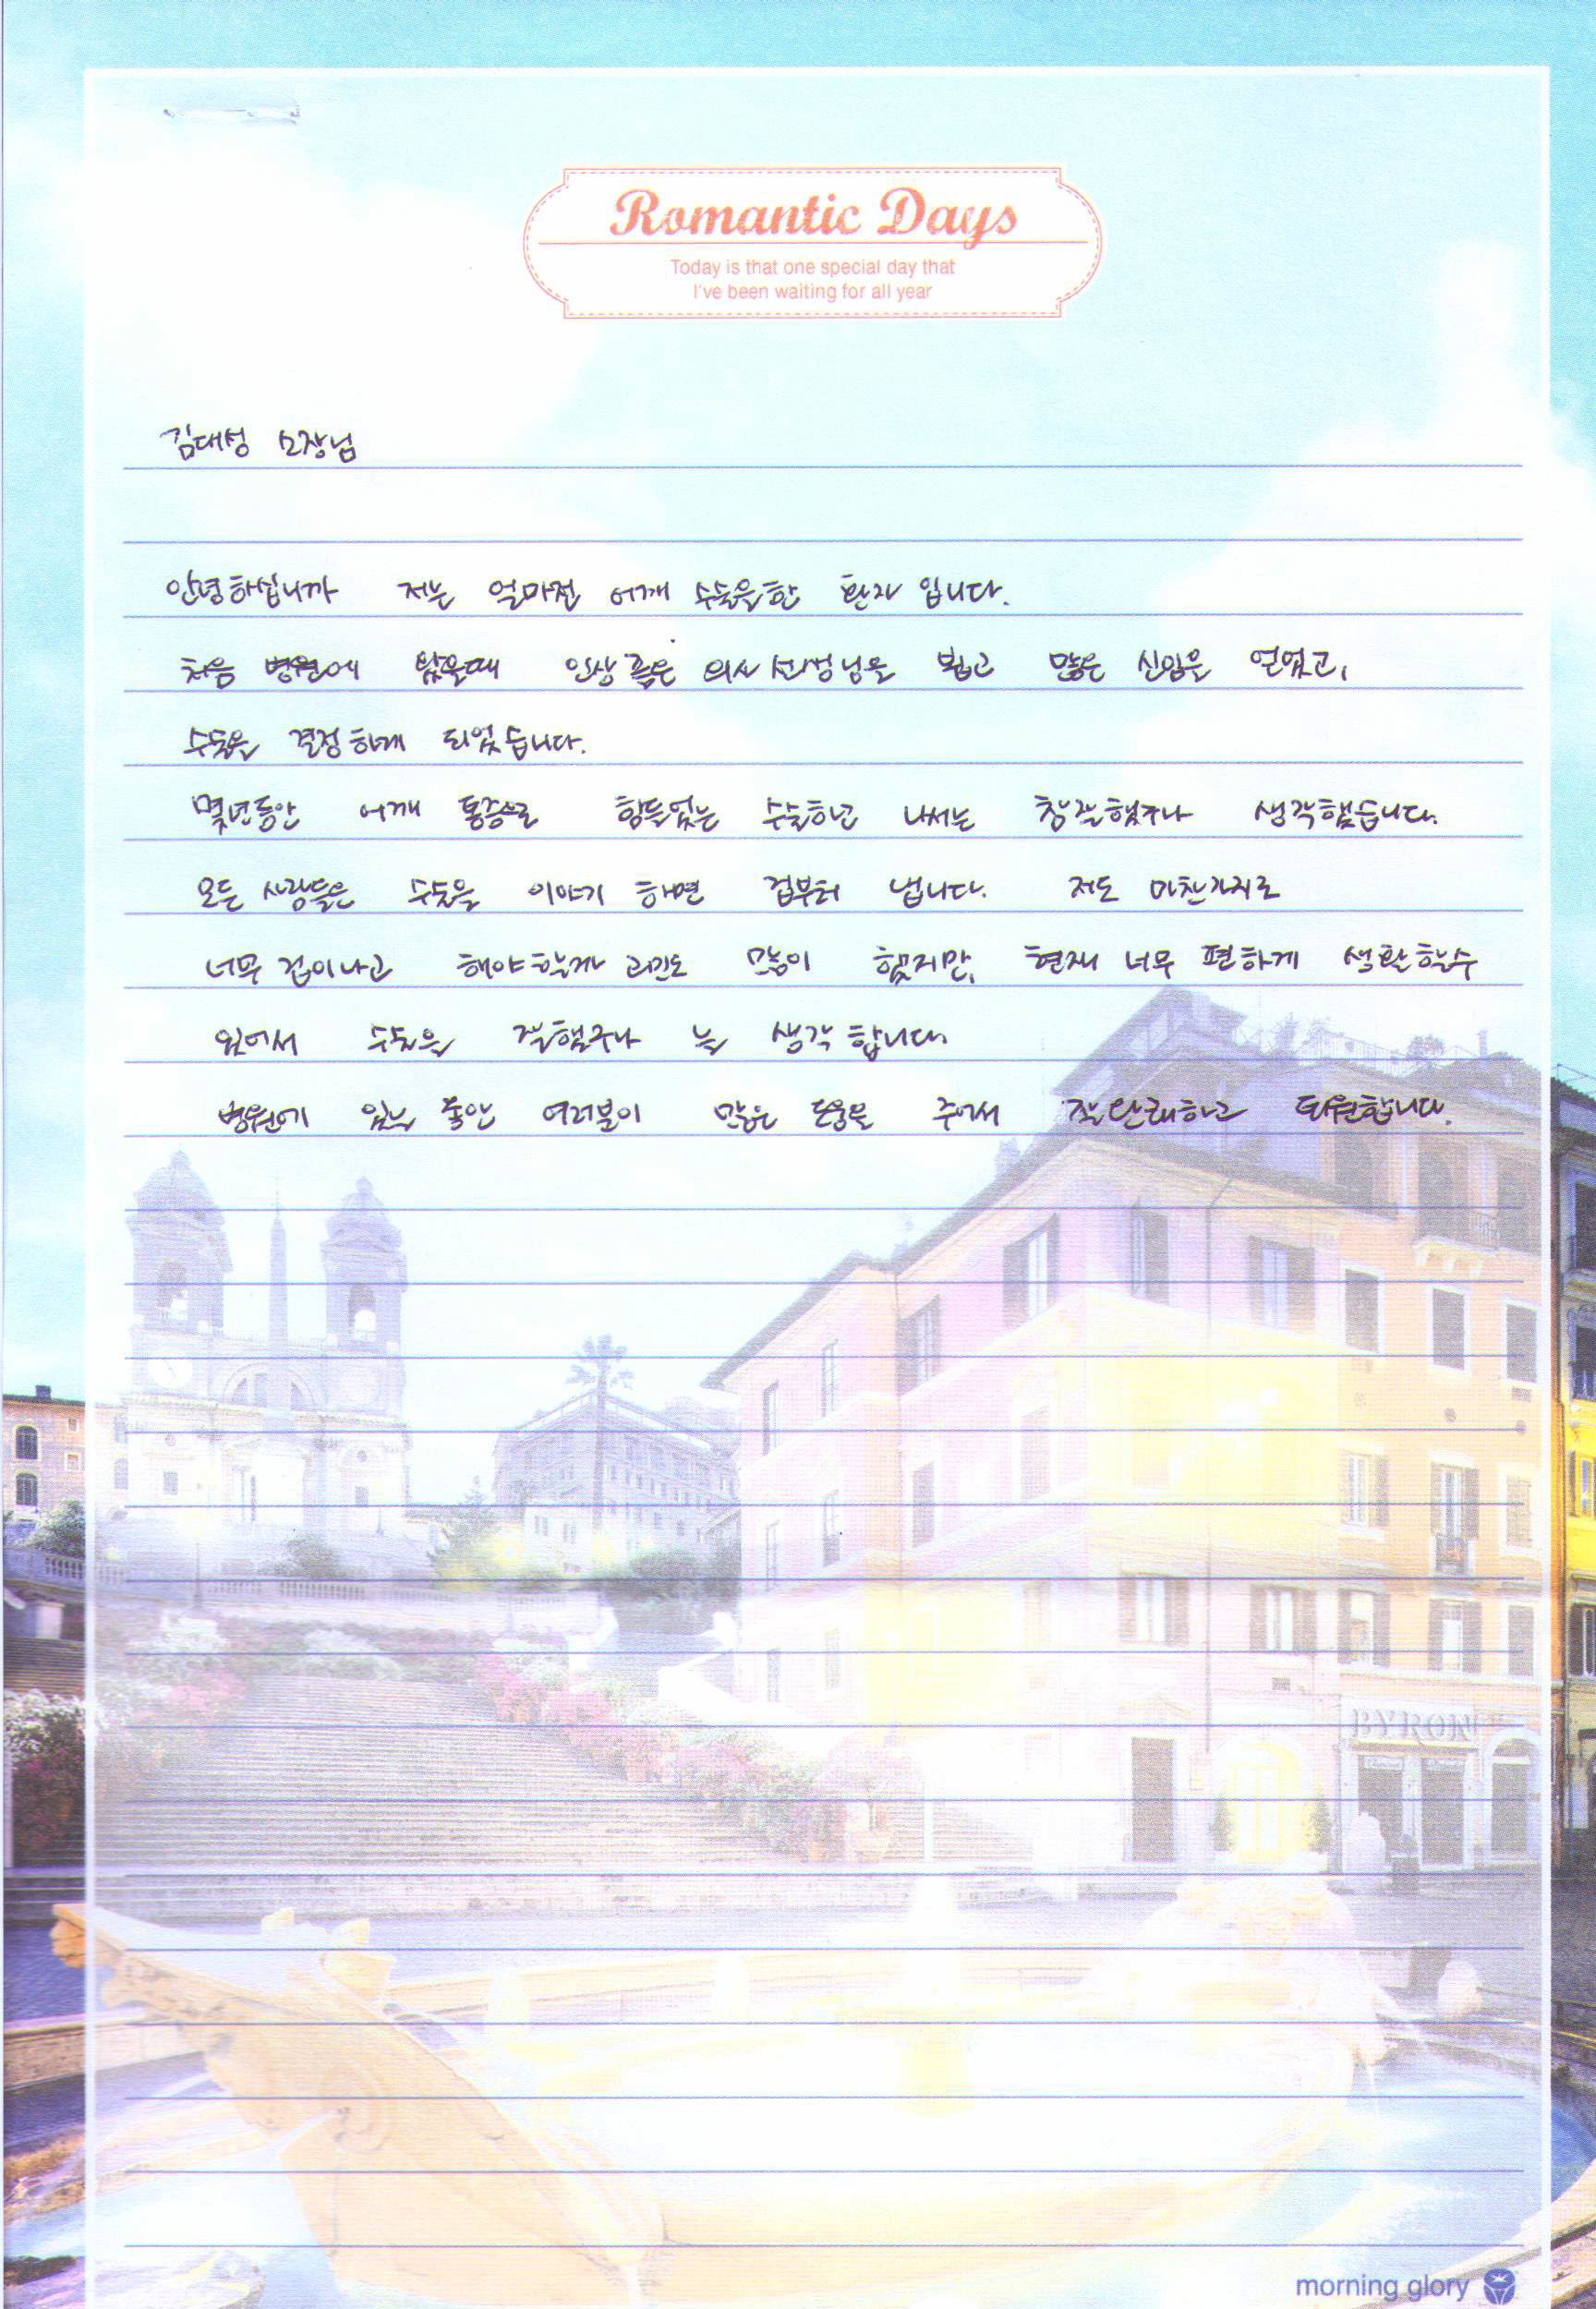 Romantic Days
Today is that one special day that
I've been waiting for all year
김대성 소장님
안녕하십니까 저는 얼마전 어깨 수술을한 환자 입니다.
처음 병원에 왔을때 인상 좋은 의사 선생님을 뵙고 많은 신임을 얻었고,
수술을 결정하게 되었습니다.
몇년동안 어깨 통증으로 힘들었는 수술하고 나서는 참 잘했구나 생각했습니다.
모든 사람들은 수술을 이야기 하면 겁부터 냅니다. 저도 마찬가지로
너무 겁이나고 해야할까 고민도 많이 했지만, 현재 너무 편하게 생활할수
있어서 수술을 잘했구나 늘 생각합니다.
병원에 있는 동안 여러분이 많은 도움을 주어서 퇴원합니다.
BYRON
morning glory